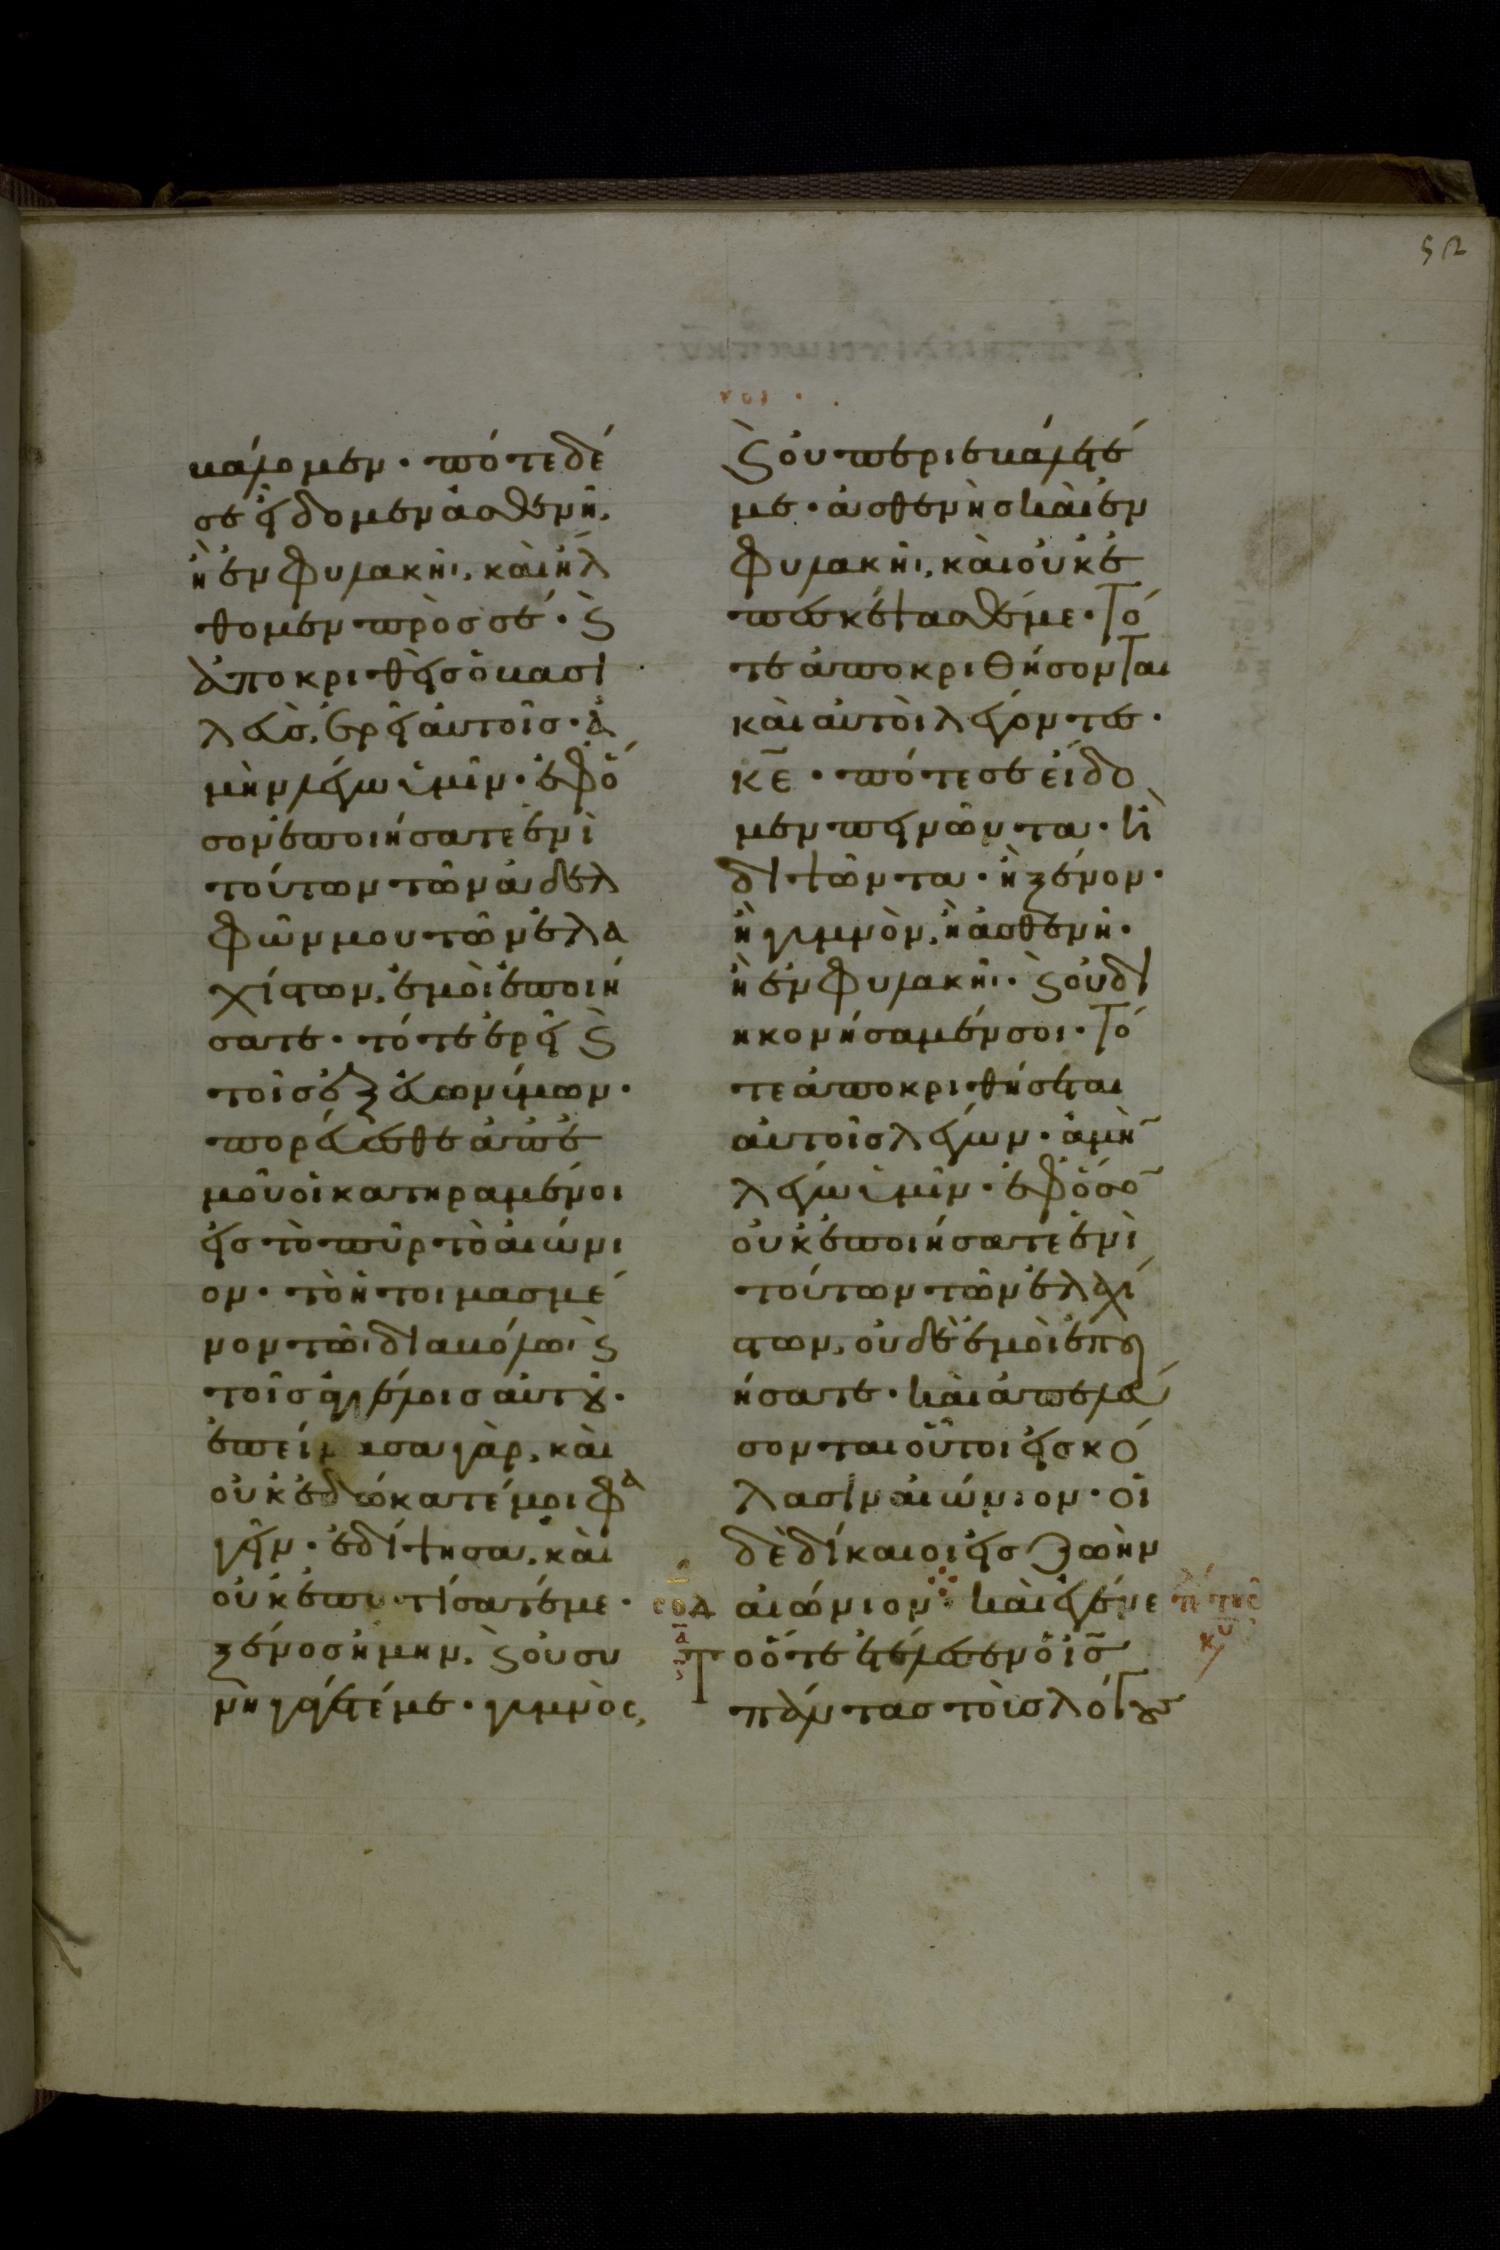 52
κάλομεν· πότε δέ
σε εἴδομεν ἀσθενῆ,
ἢ ἐν φυλακῆι, καὶ ἤλ
θομεν πρὸς σέ· ϗ
ἀποκριθεὶς ὁ βασι
λεὺς, ἐρεῖ αὐτοῖς· ἀ
μὴν λέγω ὑμῖν· ἐφ' ὅ
σον ἐποιήσατε ἑνὶ
τούτων τῶν ἀδελ
φῶν μου τῶν ἐλα
χίστων, ἐμοὶ ἐποιή
σατε· τότε ἐρεῖ ϗ
τοῖς ἐξ εὐωνύμων·
πορεύεσθε ἀπ' ἐ
μοῦ οἱ κατηραμένοι
εἰς τὸ πῦρ τὸ αἰώνι
ον· τὸ ἡτοιμασμέ
νον τῶι διαβόλωι ϗ
τοῖς ἀγγέλοις αὐτοῦ·
ἐπείνασα γὰρ, καὶ
οὐκ ἐδώκατέ μοι φα
γεῖν· ἐδίψησα, καὶ
οὐκ ἐποτίσατέ με·
ξένος ἤμην, ϗ οὐ συ
νηγάγετέ με· γυμνὸς,
ϗ οὐ περιεβάλετέ
με· ἀσθενὴς καὶ ἐν
φυλακῆι, καὶ οὐκ ἐ
πεσκέψασθέ με· Τό
τε ἀποκριθήσονται
καὶ αὐτοὶ λέγοντες·
κ̅ε̅· πότε σε εἴδο
μεν πεινῶντα· ἢ
διψῶντα· ἢ ξένον·
ἢ γυμνὸν, ἢ ἀσθενῆ·
ἢ ἐν φυλακῆι· ϗ οὐ δι
ηκονήσαμέν σοι· Τό
τε ἀποκριθήσεται
αὐτοῖς λέγων· ἀμὴν
λέγω ὑμῖν· ἐφ' ὅσον
οὐκ ἐποιήσατε ἑνὶ
τούτων τῶν ἐλαχί
στων, οὐδὲ ἐμοὶ ἐποι
ήσατε· καὶ ἀπελεύ
σονται οὗτοι εἰς κό
λασιν αἰώνιον· οἱ
δὲ δίκαιοι εἰς ζωὴν
αἰώνιον· καὶ ἐγένε
Το ὅτε ἐτέλεσεν ὁ ι̅ς̅
πάντας τοὺς λόγους